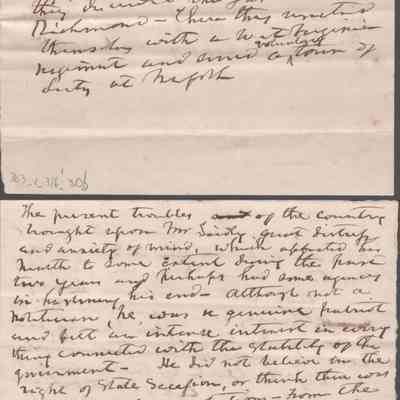 they
Richmond – There they united
themselves with a West Virginia
regiment and served a voluntary tour of
duty at Norfolk
The present troubles of the country
brought upon Mr Sandy great distress
and anxiety of mind, which affected his
health to some extent during the past
two years and perhaps had some agency
in hastening his end – Although not a
politician, he was a genuine patriot
and felt an intense interest in every
thing connected with the stability of the
government – He did not believe in the
right of State Secession, or think there was
from the